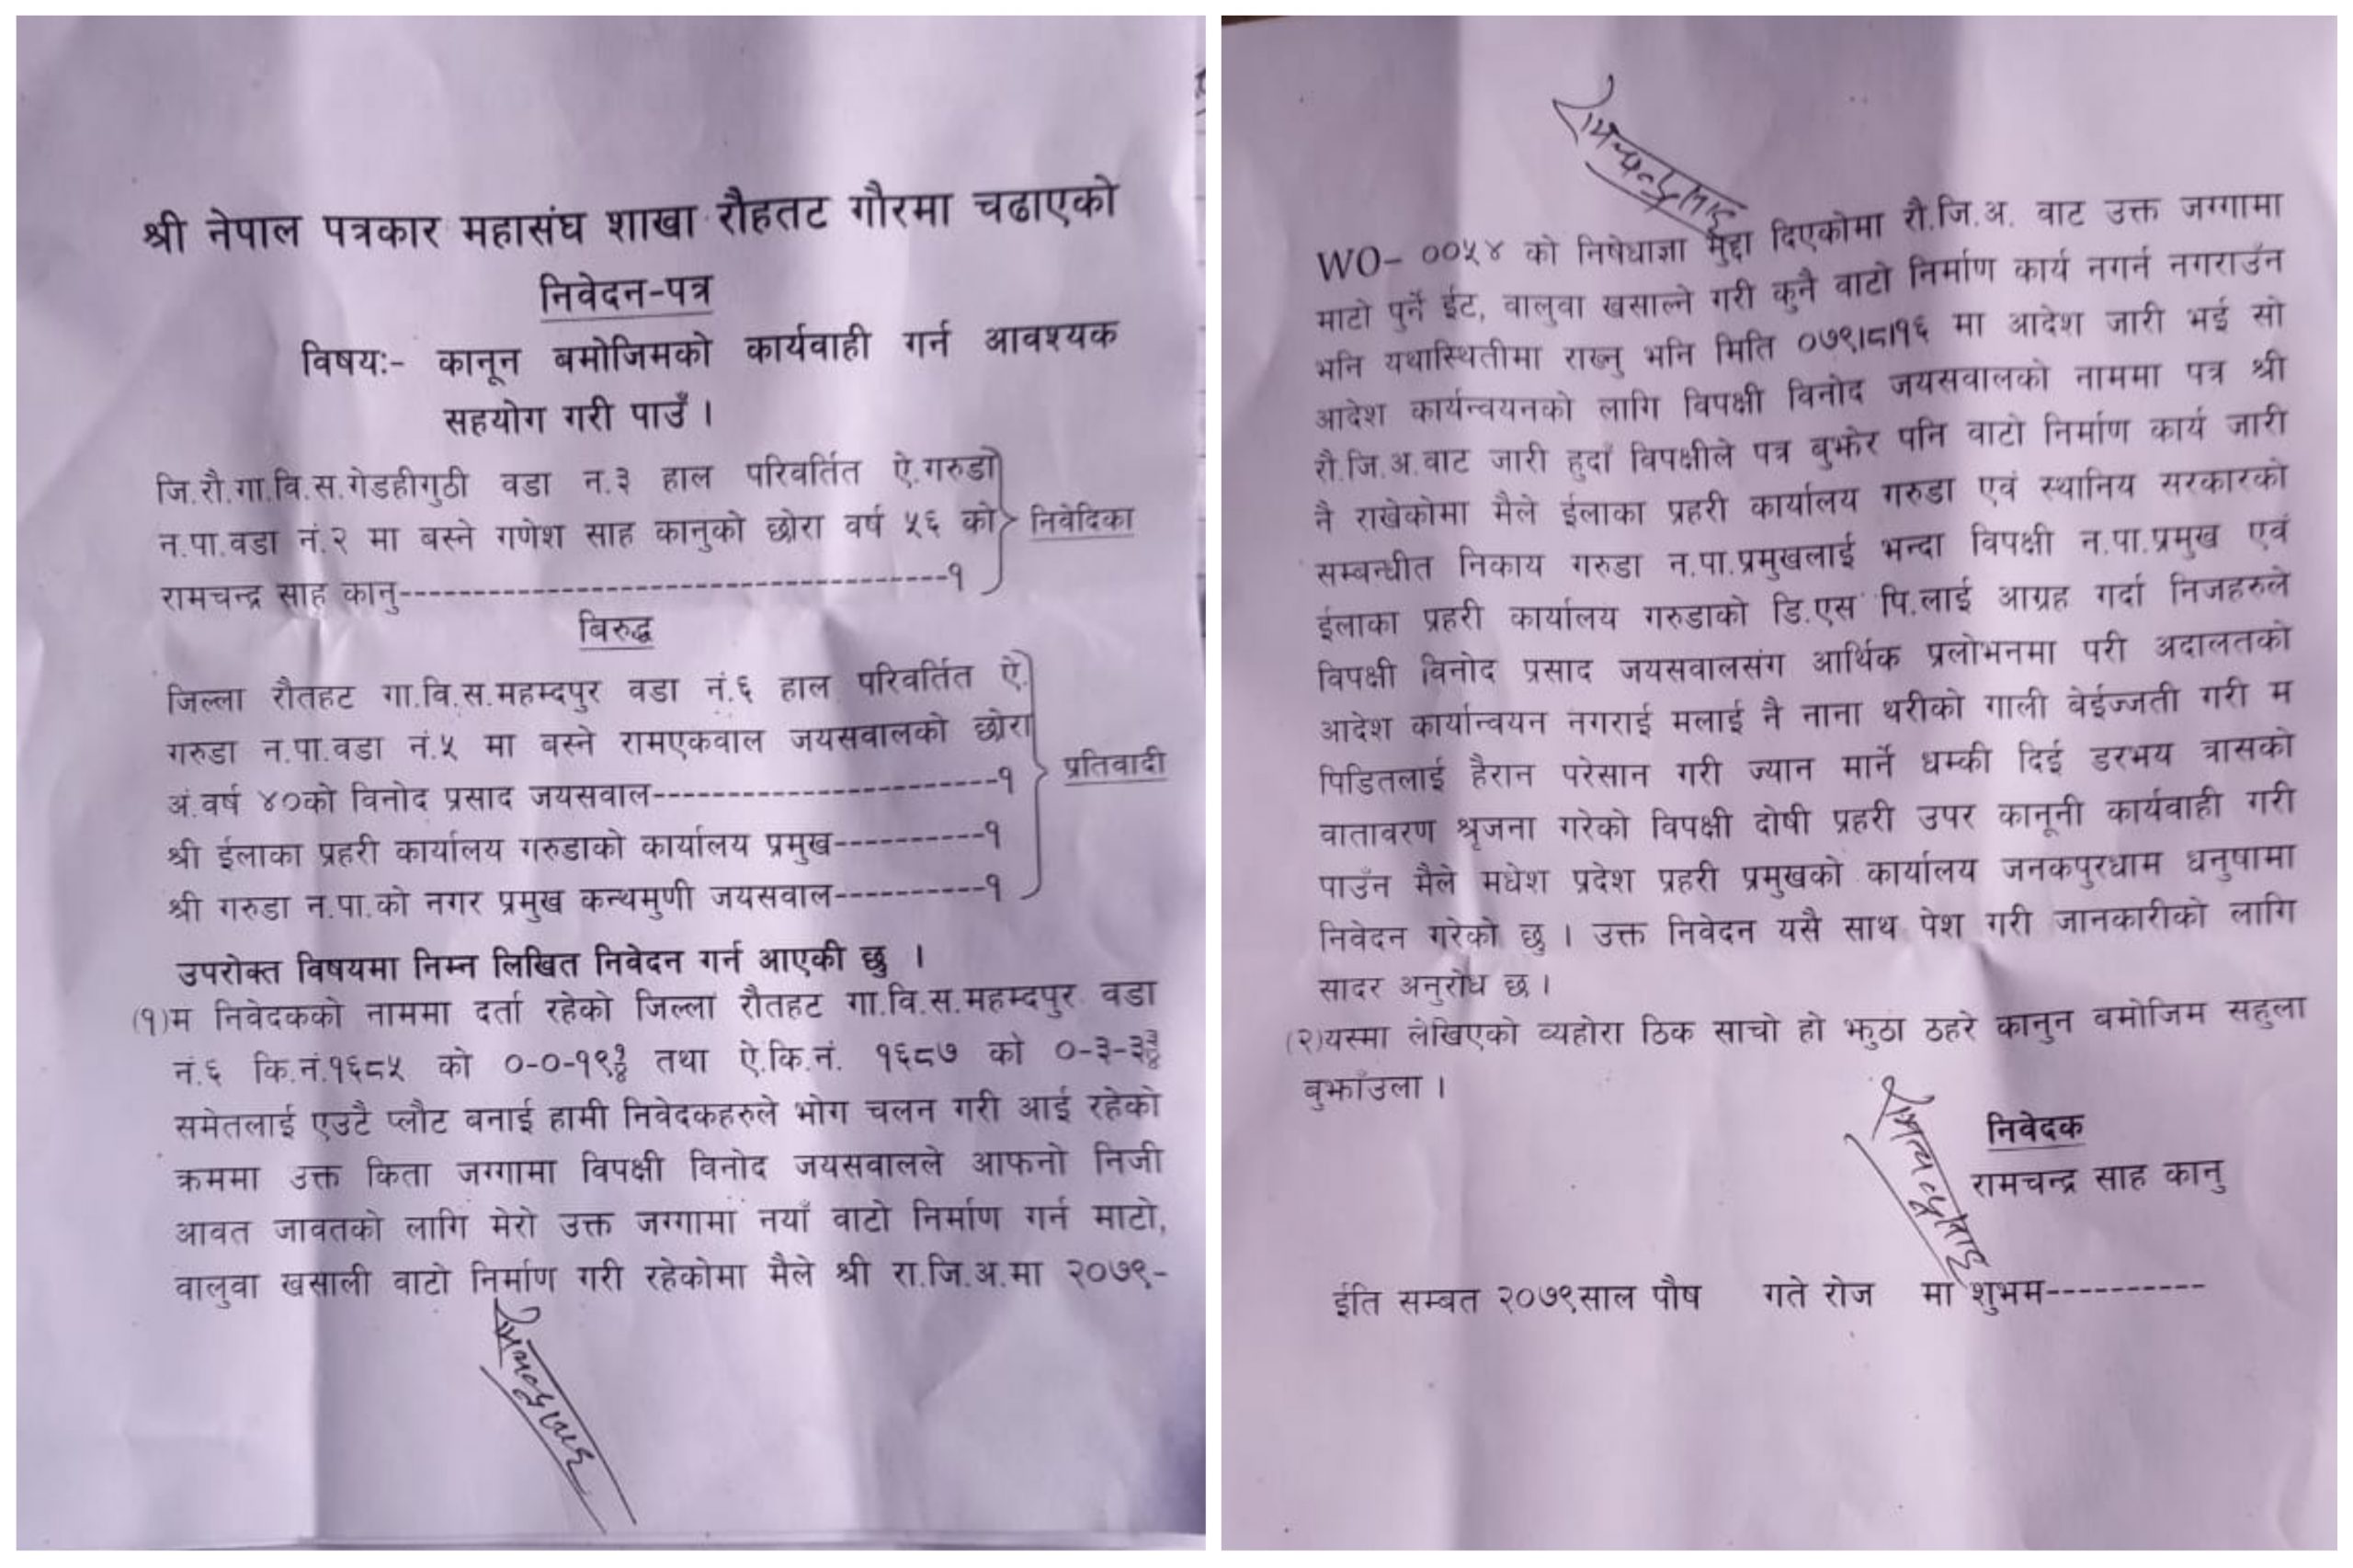 श्री नेपाल पत्रकार महासंघ शाखा रौहतट गौरमा चढाएको
निवेदन-पत्र
विषयः- कानून बमोजिमको कार्यवाही गर्न आवश्यक
सहयोग गरी पाउँ ।
जि.रौ.गा.वि.स.गेडहीगुठी वडा न.३ हाल परिवर्तित ऐ.गरुडा
न.पा.वडा नं.२ मा बस्ने गणेश साह कानुको छोरा वर्ष ५६ को निवेदिका
रामचन्द्र साह कानु-------------------------------------१
बिरुद्ध
जिल्ला रौतहट गा.वि.स.महम्दपुर वडा नं.६ हाल परिवर्तित ऐ.
गरुडा न.पा.वडा नं.५ मा बस्ने रामएकवाल जयसवालको छोरा
अं.वर्ष ४०को विनोद प्रसाद जयसवाल-----------------------१ प्रतिवादी
श्री ईलाका प्रहरी कार्यालय गरुडाको कार्यालय प्रमुख----------१
श्री गरुडा न.पा.को नगर प्रमुख कन्थमुणी जयसवाल----------१
उपरोक्त विषयमा निम्न लिखित निवेदन गर्न आएकी छु ।
(१)म निवेदकको नाममा दर्ता रहेको जिल्ला रौतहट गा.वि.स.महम्दपुर वडा
नं.६ कि.नं.१६८५ को ०-०-१९ तथा ऐ.कि.नं. १६८७ को ०-३-३
समेतलाई एउटै प्लौट बनाई हामी निवेदकहरुले भोग चलन गरी आई रहेको
क्रममा उक्त किता जग्गामा विपक्षी विनोद जयसवालले आफनो निजी
आवत जावतको लागि मेरो उक्त जग्गामा नयाँ वाटो निर्माण गर्न माटो,
वालुवा खसाली वाटो निर्माण गरी रहेकोमा मैले श्री रा.जि.अ.मा २०७९-
रामचन्द्र साह
रामचन्द्र साह
WO- ००५४ को निषेधाज्ञा मुद्दा दिएकोमा रौ.जि.अ. वाट उक्त जग्गामा
माटो पुर्ने ईट, वालुवा खसाल्ने गरी कुनै वाटो निर्माण कार्य नगर्न नगराउँन
भनि यथास्थितीमा राख्नु भनि मिति ०७९।८।१६ मा आदेश जारी भई सो
आदेश कार्यन्वयनको लागि विपक्षी विनोद जयसवालको नाममा पत्र श्री
रौ.जि.अ.वाट जारी हुदाँ विपक्षीले पत्र बुझेर पनि वाटो निर्माण कार्य जारी
नै राखेकोमा मैले ईलाका प्रहरी कार्यालय गरुडा एवं स्थानिय सरकारको
सम्बन्धीत निकाय गरुडा न.पा.प्रमुखलाई भन्दा विपक्षी न.पा.प्रमुख एवं
ईलाका प्रहरी कार्यालय गरुडाको डि.एस पि.लाई आग्रह गर्दा निजहरुले
विपक्षी विनोद प्रसाद जयसवालसंग आर्थिक प्रलोभनमा परी अदालतको
आदेश कार्यान्वयन नगराई मलाई नै नाना थरीको गाली बेईज्जती गरी म
पिडितलाई हैरान परेसान गरी ज्यान मार्ने धम्की दिई डरभय त्रासको
वातावरण श्रृजना गरेको विपक्षी दोषी प्रहरी उपर कानूनी कार्यवाही गरी
पाउँन मैले मधेश प्रदेश प्रहरी प्रमुखको कार्यालय जनकपुरधाम धनुषामा
निवेदन गरेको छु । उक्त निवेदन यसै साथ पेश गरी जानकारीको लागि
सादर अनुरोध छ ।
(२)यस्मा लेखिएको व्यहोरा ठिक साचो हो झुठा ठहरे कानुन बमोजिम सहुला
बुझाँउला ।
निवेदक
रामचन्द्र साह कानु
रामचन्द्र साह
ईति सम्बत २०७९साल पौष गते रोज मा शुभम----------